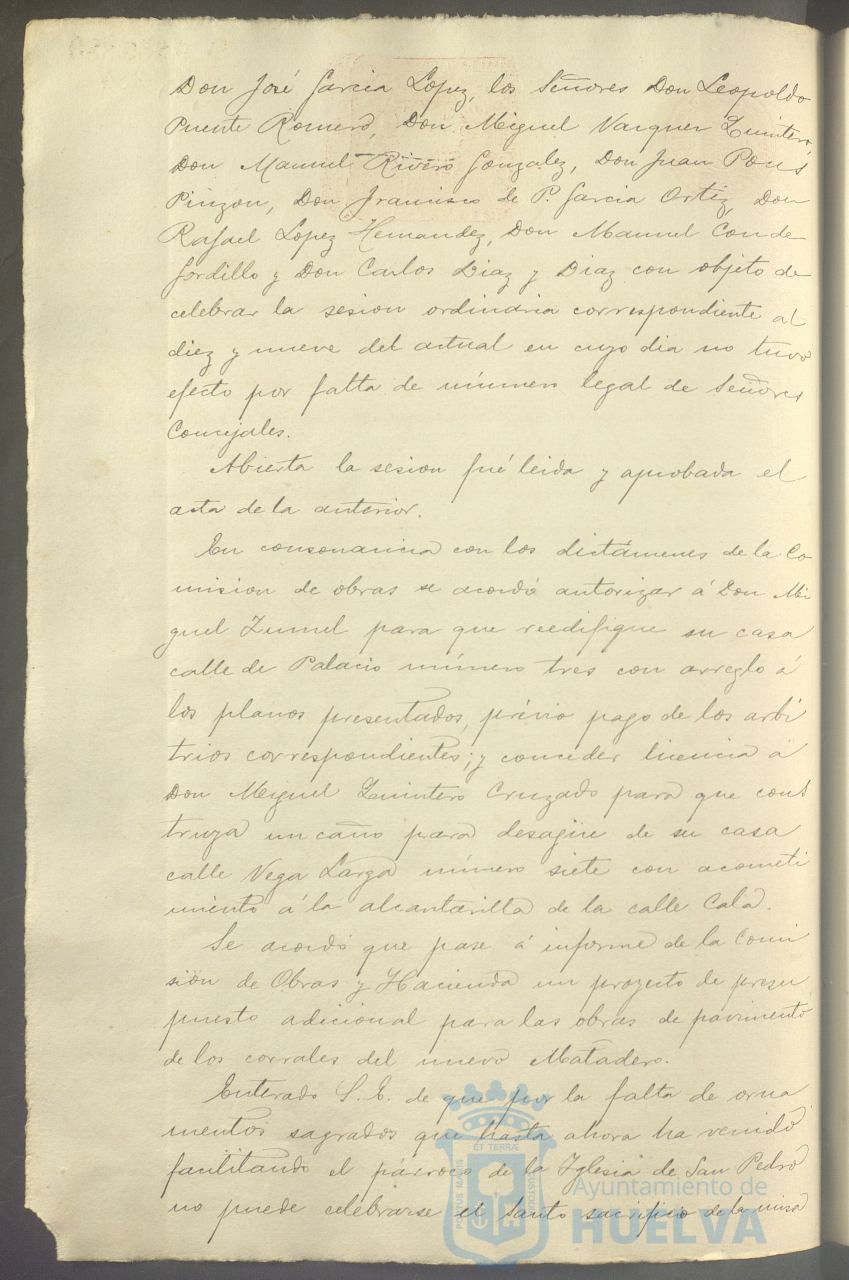 Don José Garcia Lopez, los Señores Don Leopoldo
Puente Romero, Don Miguel Vazquez Quintero,
Don Manuel Rivero Gonzalez, Don Juan Pons
Pinzon, Don Francisco de P. Garcia Ortiz, Don
Rafael Lopez Hernandez, Don Manuel Conde
Gordillo y Don Carlos Diaz y Diaz con objeto de
celebrar la sesion ordinaria correspondiente al
diez y nueve del actual en cuyo dia no tuvo
efecto por falta de número legal de Señores
Concejales.
Abierta la sesion fué leida y aprobada el
acta de la anterior.
En consonancia con los dictámenes de la Co-
mision de obras se acordó autorizar á Don Mi
guel Zumel para que reedifique su casa
calle de Palacio número tres con arreglo á
los planos presentados, prévio pago de los arbi
trios correspondientes; y conceder licencia á
Don Miguel Quintero Cruzado para que cons
truya un caño para desagüe de su casa
calle Vega Larga número siete con acometi
miento á la alcantarilla de la calle Cala.
Se acordó que pase á informe de la Comi
sion de Obras y Hacienda un proyecto de presu
puesto adicional para las obras de pavimento
de los corrales del nuevo Matadero.
Enterado S. E. de que por la falta de orna
mentos sagrados que hasta ahora ha venido
facilitando el párroco de la Iglesia de San Pedro
no puede celebrarse el Santo sacrificio de la misa
PORTUS MARIS
ET TERRÆ
CUSTODIA
Ayuntamiento de
HUELVA